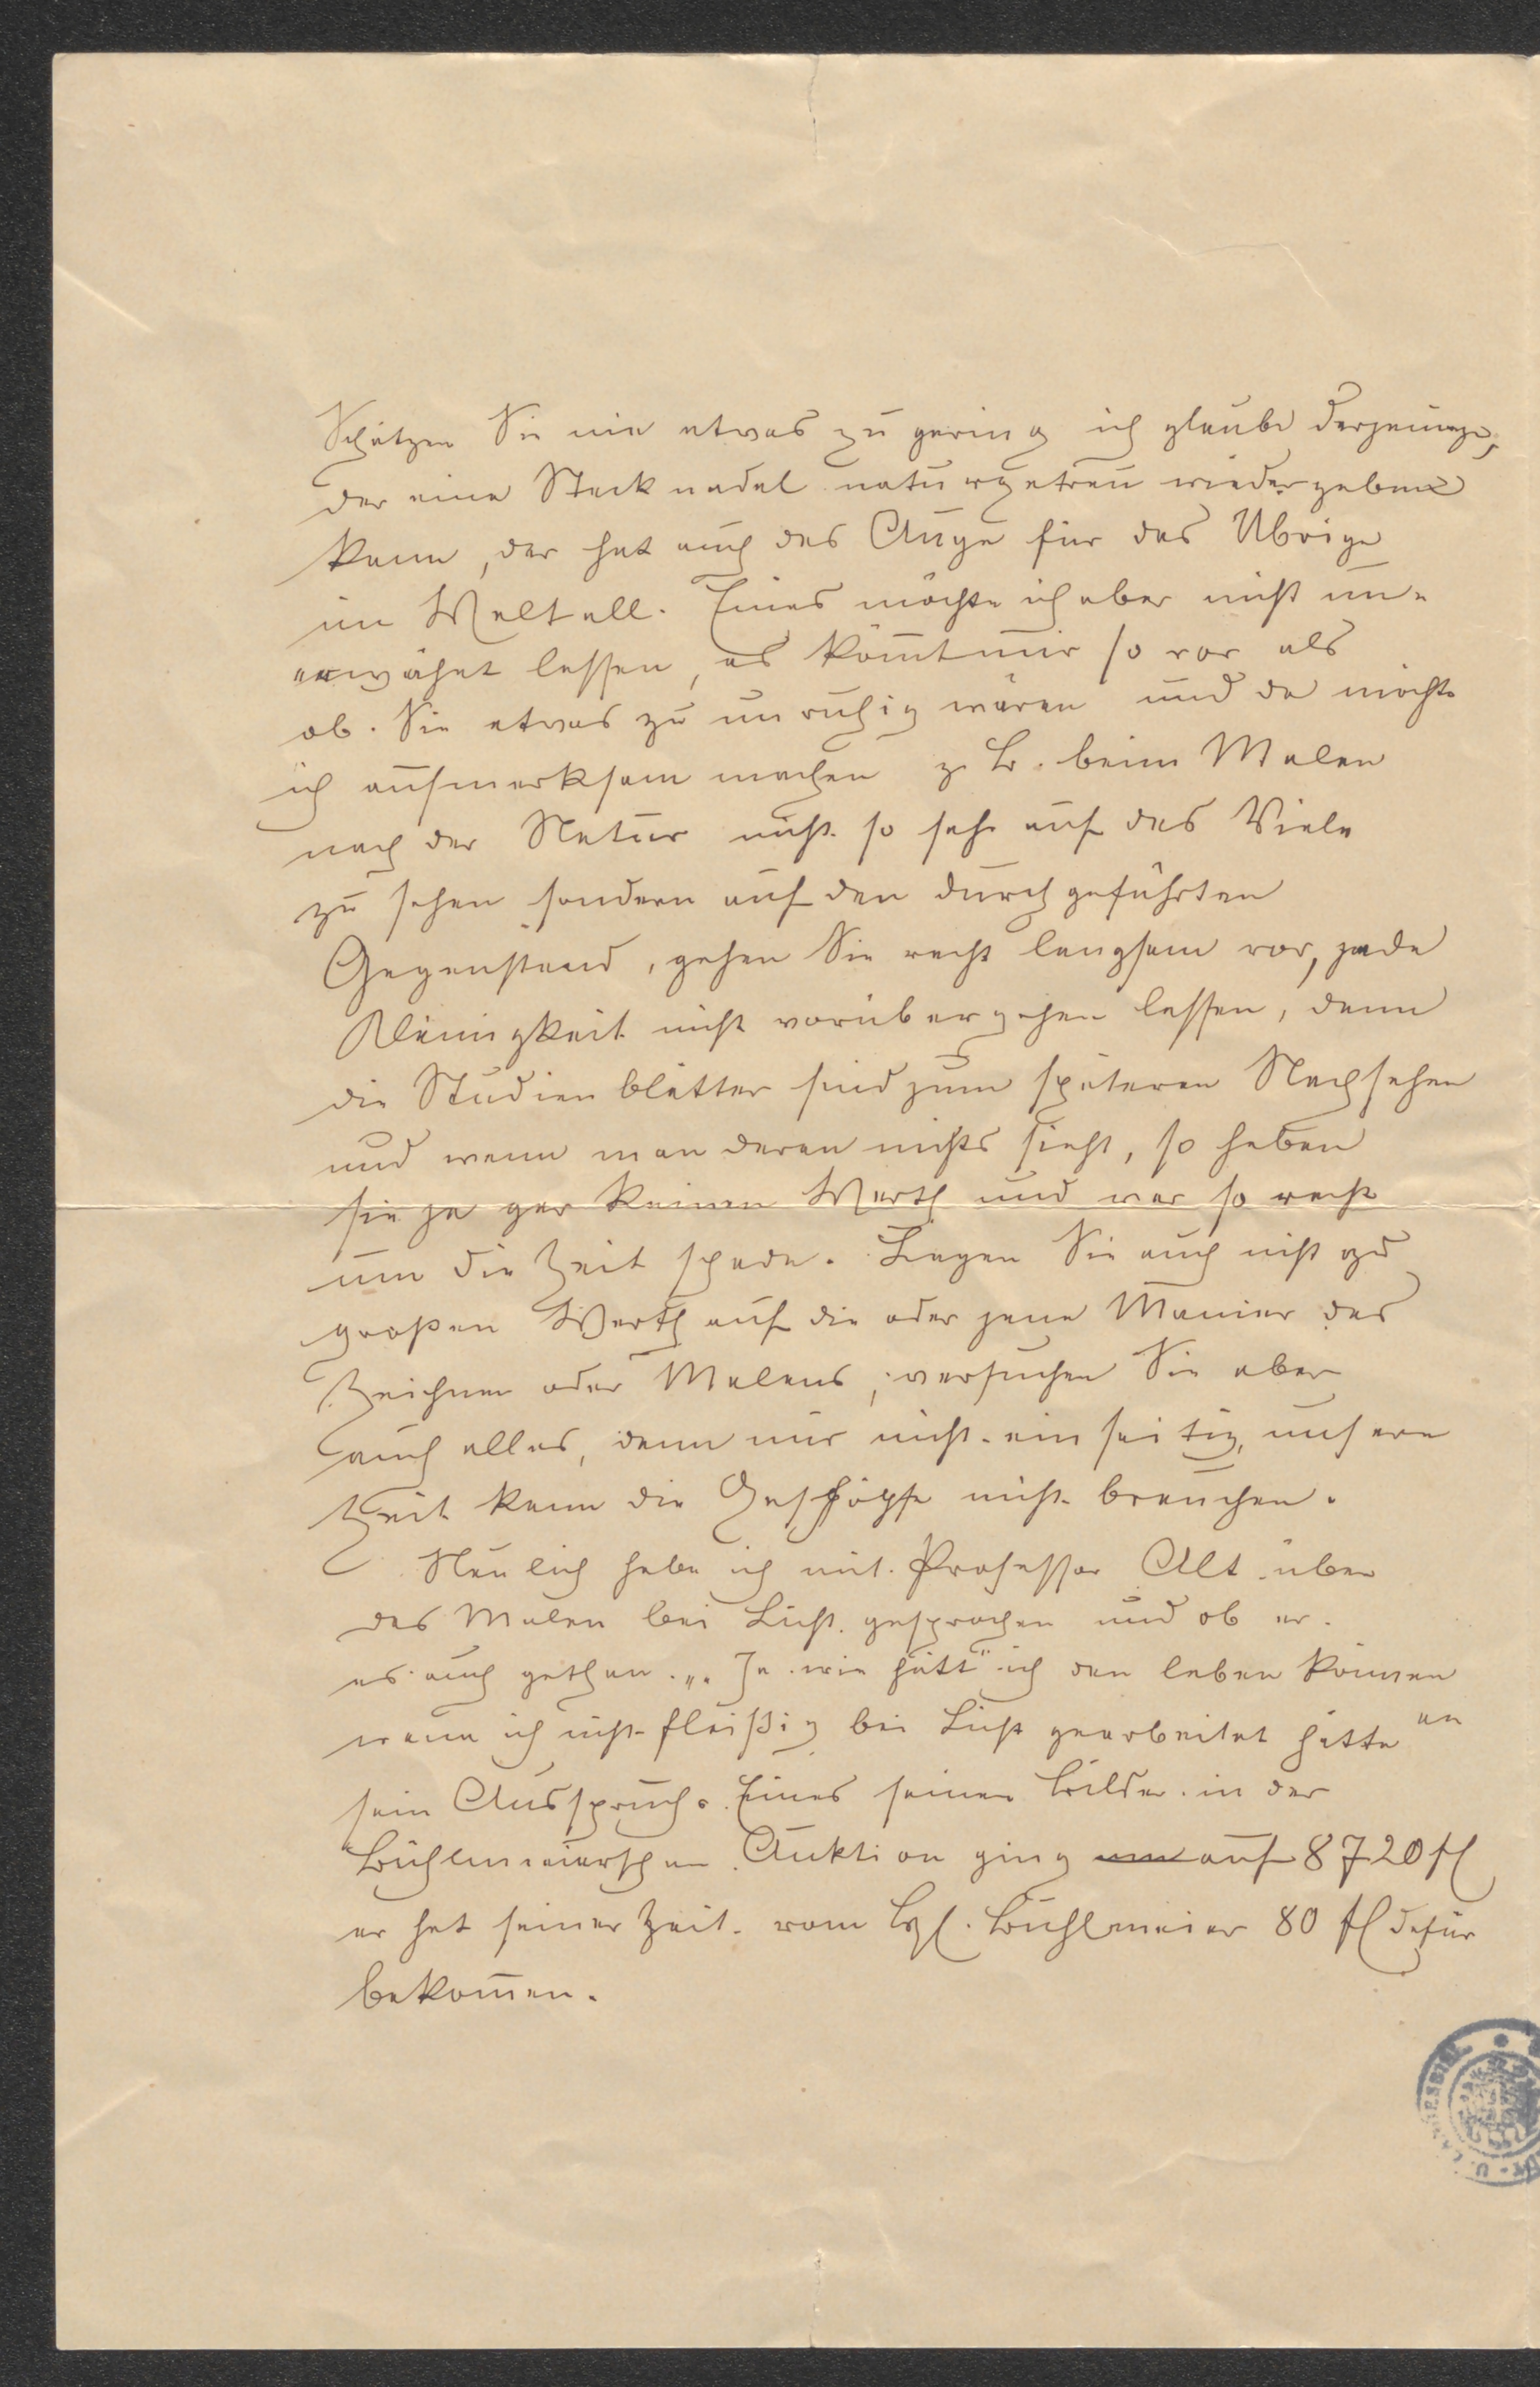 Schätzen Sie nie etwas zu gering ich glaube derjenige,
der eine Stecknadel naturgetreu wiedergeben
kann, der hat auch das Auge für das Übrige
im Weltall. Eines möchte ich aber nicht un-
erwähnt lassen, es kom̄t mir so vor als
ob Sie etwas zu unruhig wären und da möchte
ich aufmerksam machen z. B. beim Malen
nach der Natur nicht so sehr auf das Viele
zu sehen sondern auf den durchgeführten
Gegenstand, gehen Sie recht langsam vor, jede
Kleinigkeit nicht vorübergehen lassen, denn
die Studienblätter sind zum späteren Nachsehen
und wenn man daran nichts sieht, so haben
sie ja gar keinen Werth und war so recht
um die Zeit schade. Legen Sie auch nicht zu
großen Werth auf die oder jene Manier des
Zeichnen oder Malens, versuchen Sie aber
auch alles, denn nur nicht einseitig, unsere
Zeit kann die Geschöpfe nicht brauchen.
Neulich habe ich mit Professor Alt über
das Malen bei Licht gesprochen und ob er
es auch gethan. „Ja wie hätt' ich den leben können
wenn ich nicht fleißig bei Licht gearbeitet hätte“
sein Ausspruch. Eines seiner Bilder in der
Bühlmeierschen Auktion ging auf 8720 fl
er hat seiner Zeit vom Bühlmeier 80 fl dafür
bekom̄en.